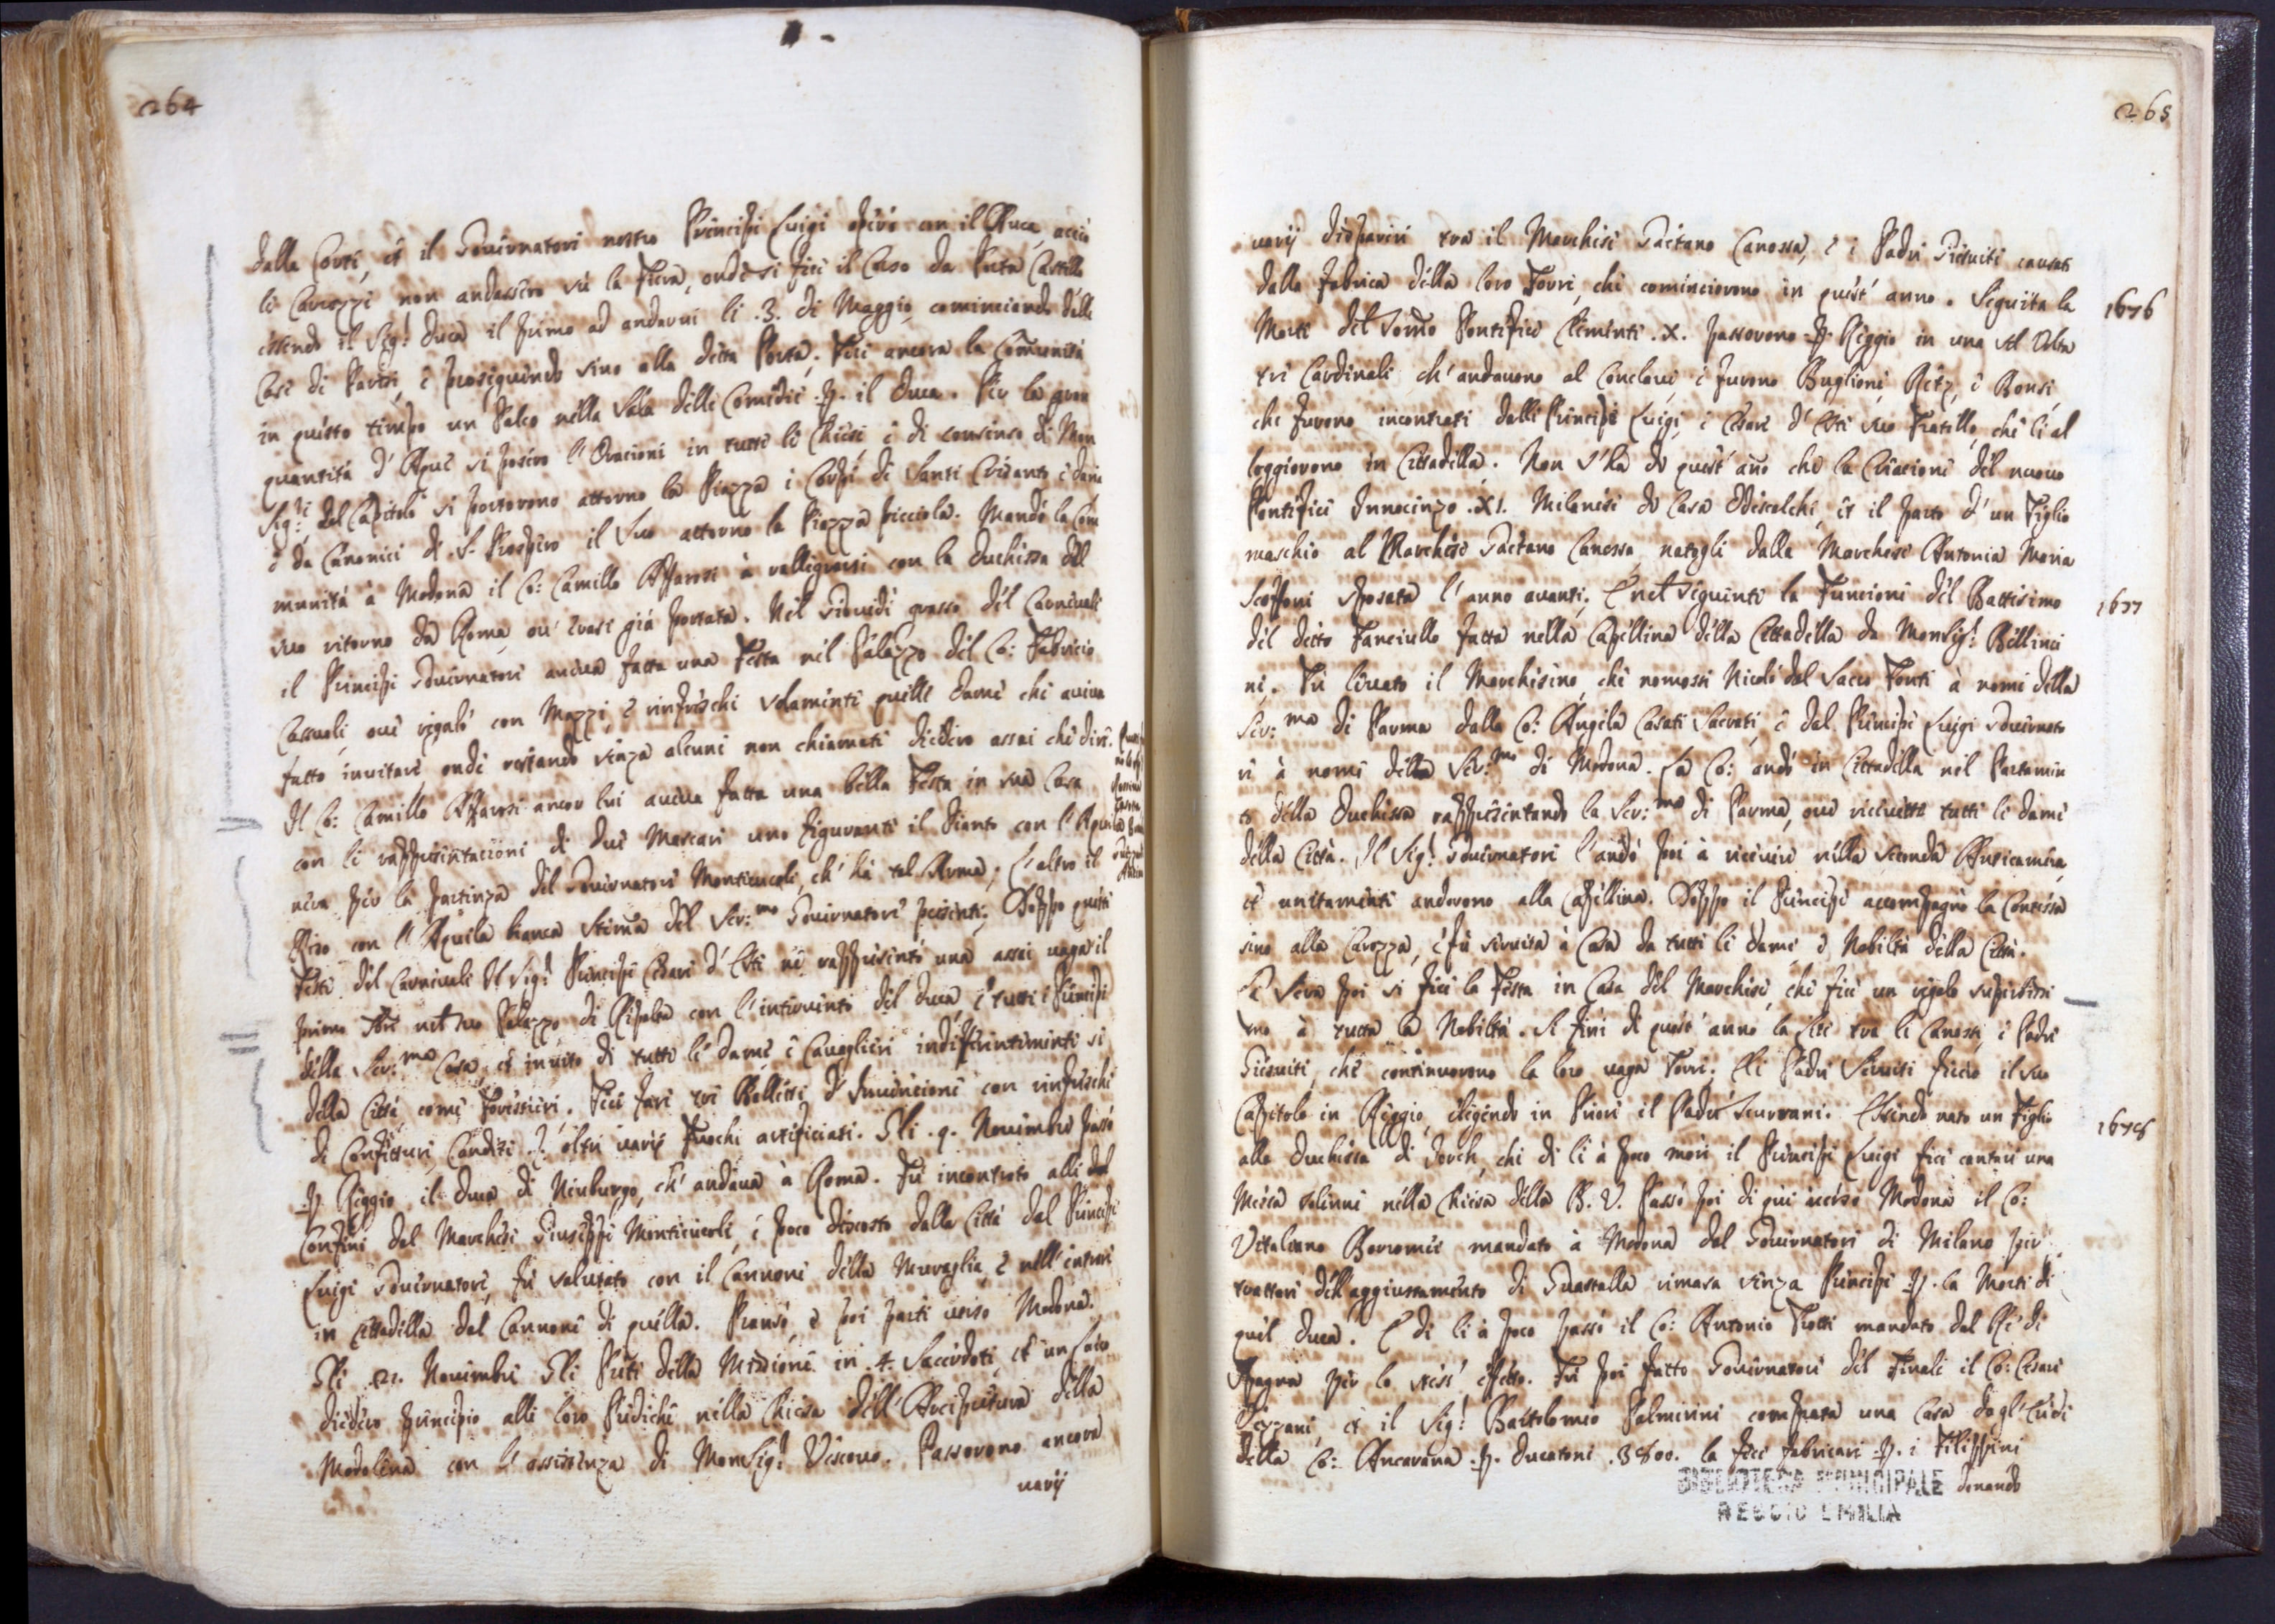 264
dalla Corte, et il Governatore nostro Principe Luigi operò con il Duca, acciò
le Carozze non andassero sù la Fiera, onde si fece il Corso da Porta Castello
essendo il Sig.r Duca il primo ad andarvi li .3. di Maggio, cominciando dalle
Case di Parisi, e proseguendo sino alla detta Porta. Fece ancora la Comunità
in questo tempo un Palco nella Sala delle Comedie .p. il Duca. Per la gran
quantità d'Aque si posero l'Orationi in tutte le Chiese, e di consenso di Mon
Sig.r del Capitolo si portorono attorno la Piazza i Corpi di Santi Crisanto, e Daria
e da Canonici di S. Prospero il Suo attorno la Piazza picciola. Mandò la Com
munità à Modona il Co: Camillo Affarosi à rallegrarsi con la Duchessa del
suo ritorno da Roma, ov' erasi già portata. Nel Giovedì grasso del Carnevale
il Principe Governatore aveva fatta una Festa nel Palazzo del Co: Fabricio
Cassoli, ove regalò con Mazzi, e rinfreschi solamente quelle Dame che aveva
fatto invitare, onde restando senza alcune non chiamate diedero assai che dire.
Il Co: Camillo Affarosi ancor lui aveva fatta una bella Festa in sua Casa
con le rappresentationi di due Mascare uno figurante il Pianto con l'Aquila
nera per la partenza del Governatore Montecucoli, ch' hà tal Arma; l'altro il
Riso con l'Aquila bianca Stema del Ser:mo Governatore presente. Doppo queste
Feste del Carnevale Il Sig.r Principe Cesare d'Este ne rappresentò una assai vaga il
primo nel suo Palazzo di Rivalta con l'intervento del Duca, e tutti i Principi
della Ser:ma Casa, et invito di tutte le Dame, e Cavaglieri indifferentemente si
della Città, come Forestieri. Fece fare tre Balletti d'Invencione con rinfreschi
di Confetture, Canditi et oltre varij Fuochi artificiati. Gli .9. Novembre passò
.p. Reggio il Duca di Neuburgo, ch' andava à Roma. Fù incontrato alli
Confini dal Marchese Giuseppe Montecucoli, e poco discosto dalla Città dal Principe
Luigi Governatore, fù salutato con il Cannone della Muraglia, e nell'entrare
in Cittadella dal Cannone di quella. Pransò, e poi partì verso Modona.
Gli .21. Novembre Gli Preti della Missione in .4. Sacerdoti, et un Laico
diedero principio alle loro Prediche nella Chiesa dell'Arcipretura della
Modolena con l'assistenza di MonSig.r Vescovo. Passorono ancora
varij
265
varij dispareri tra il Marchese Gaetano Canossa, e i Padri Giesuiti causati
dalla fabrica della loro Torre, che cominciorono in quest' anno. Seguita la
1676
Morte del Somo Pontefice Clemente .X. passorono .p. Reggio in una sol volta
tre Cardinali ch' andavono al Conclave e furono Buglione, Retz, e Bonsi,
che furono incontrati dalli Principi Luigi, e Cesare d'Este suo Fratello, che li al
loggiorono in Cittadella. Non s'hà di quest' año che la Creatione del nuovo
Pontefice Innocenzo .XI. Milanese di Casa Odescalchi, et il parto d'un Figlio
maschio al Marchese Gaetano Canossa, natogli dalla Marchese Antonia Maria
Scoffoni sposata l'anno avanti. E nel Seguente la Funcione del Battesimo
1677
del detto Fanciullo fatta nella Capellina della Cittadella da MonSig.r Bellinci
ni. Fù levato il Marchesino, che nomossi Nicolò dal Sacro Fonte à nome della
Ser:ma di Parma dalla Co: Angela Casati Sacrati, e dal Principe Luigi Governato
re à nome della Ser:mo di Modona. La Co: andò in Cittadella nel Partamen
to della Duchessa rappresentando la Ser:ma di Parma, ove ricevette tutte le dame
della Città. Il Sig.r Governatore l'andò poi à ricevere nella seconda Anticamera,
et unitamente andorono alla Capellina. Doppo il Principe accompagnò la Contessa
sino alla Carozza, e fù servita à Casa da tutte le dame, e Nobiltà della Città.
La Sera poi si fece la Festa in Casa del Marchese, che fece un regalo superbissi
mo à tutta la Nobiltà. Si finì di quest' anno la Lite tra li Canossi, e Padri
Giesuiti, che continuorono la loro vaga Torre. Li Padri Serviti fecero il suo
Capitolo in Reggio, eligendo in Priore il Padre Scurvani. Essendo nato un Figlio
1678
alla Duchessa di Jorch, che di lì à poco morì il Principe Luigi fece cantare una
Messa solenne nella Chiesa della B. V. Passò poi di quì verso Modona il Co:
Vitaliano Borromeo mandato à Modona dal Governatore di Milano per
trattare dell'aggiustamento di Guastalla rimasa senza Principe .p. la Morte di
quel Duca. E di lì à poco passò il Co: Antonio Trotti mandato dal Rè di
Spagna per lo stess' effetto. Fù poi fatto Governatore del Finale il Co: Cesare
et il Sig.r Bartolomeo Palmerini comprata una Casa dagl' Eredi
della Co: Ancarana .p. Ducatoni .3800. la fece fabricare .p. i Filippini
donando
BIBLIOTECA MUNICIPALE
REGGIO EMILIA